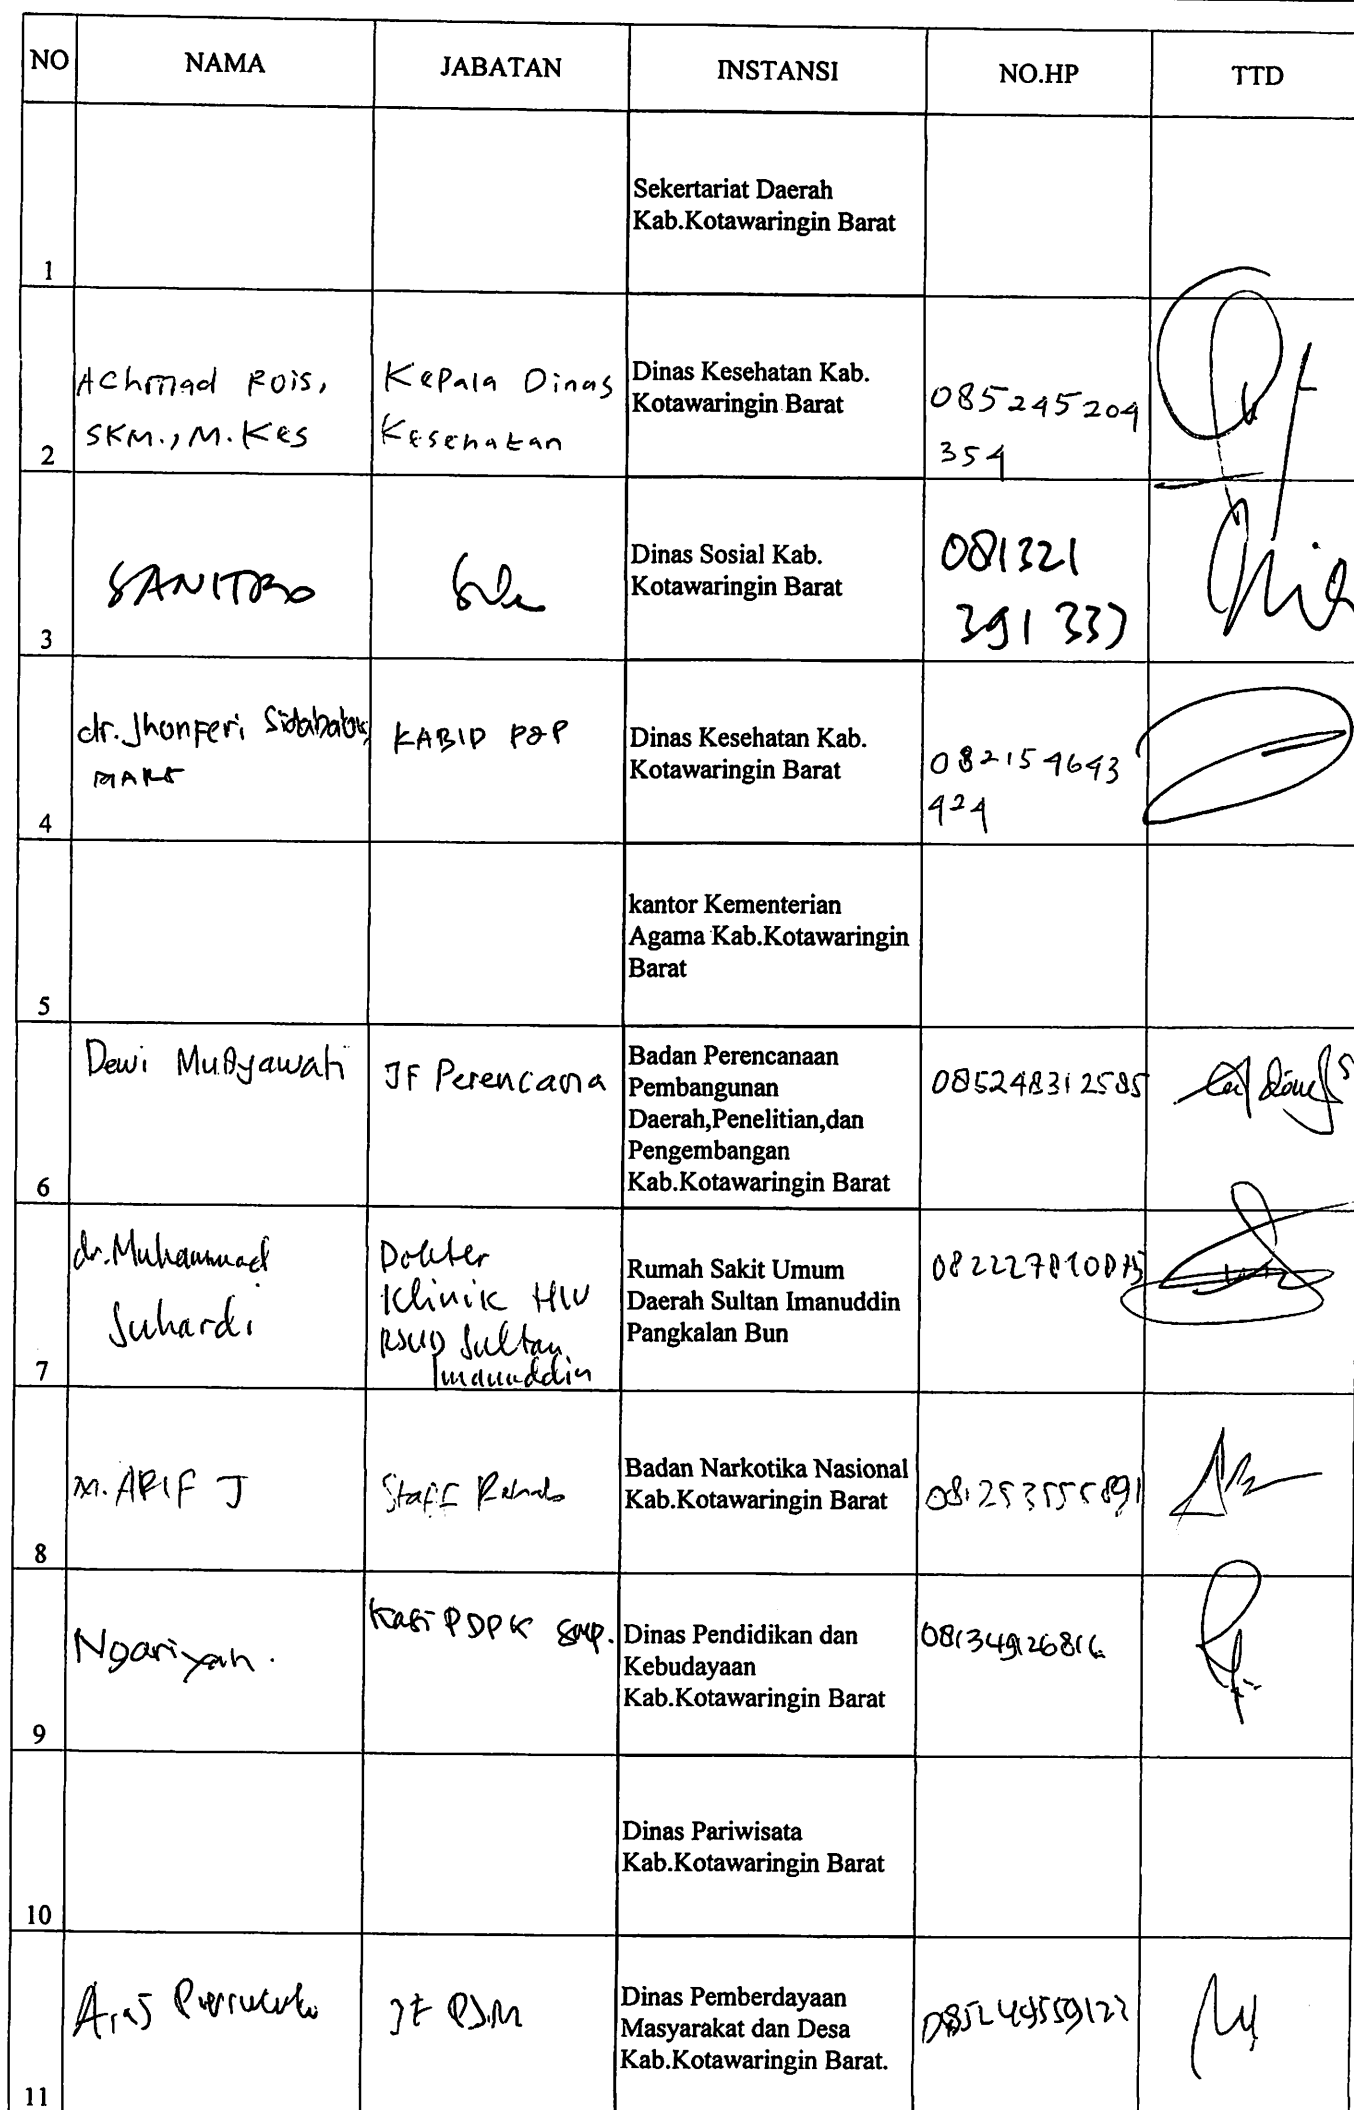 NO NAMA JABATAN INSTANSI NO.HP TTD
Sekertariat Daerah
Kab.Kotawaringin Barat
1
Achmad Rois,
SKM., M.Kes
Kepala Dinas
Kesehatan
Dinas Kesehatan Kab.
Kotawaringin Barat
085245204
354
2
SANITRO
Dinas Sosial Kab.
Kotawaringin Barat
081321
391 337
3
dr. Jhonferi Sidabalok,
MARS
KABID P2P
Dinas Kesehatan Kab.
Kotawaringin Barat
082154643
424
4
kantor Kementerian
Agama Kab.Kotawaringin
Barat
5
Dewi
JF Perencana
Badan Perencanaan
Pembangunan
Daerah,Penelitian,dan
Pengembangan
Kab.Kotawaringin Barat
085248312585
6
dr. Muhammad
Suhardi
Dokter
Klinik HIV
RSUD Sultan
Imanuddin
Rumah Sakit Umum
Daerah Sultan Imanuddin
Pangkalan Bun
7
M. ARIF J
Staff
Badan Narkotika Nasional
Kab.Kotawaringin Barat
8
Ngariyah.
Kasi PDPK SMP.
Dinas Pendidikan dan
Kebudayaan
Kab.Kotawaringin Barat
081349126816
9
Dinas Pariwisata
Kab.Kotawaringin Barat
10
JF PSM
Dinas Pemberdayaan
Masyarakat dan Desa
Kab.Kotawaringin Barat.
11